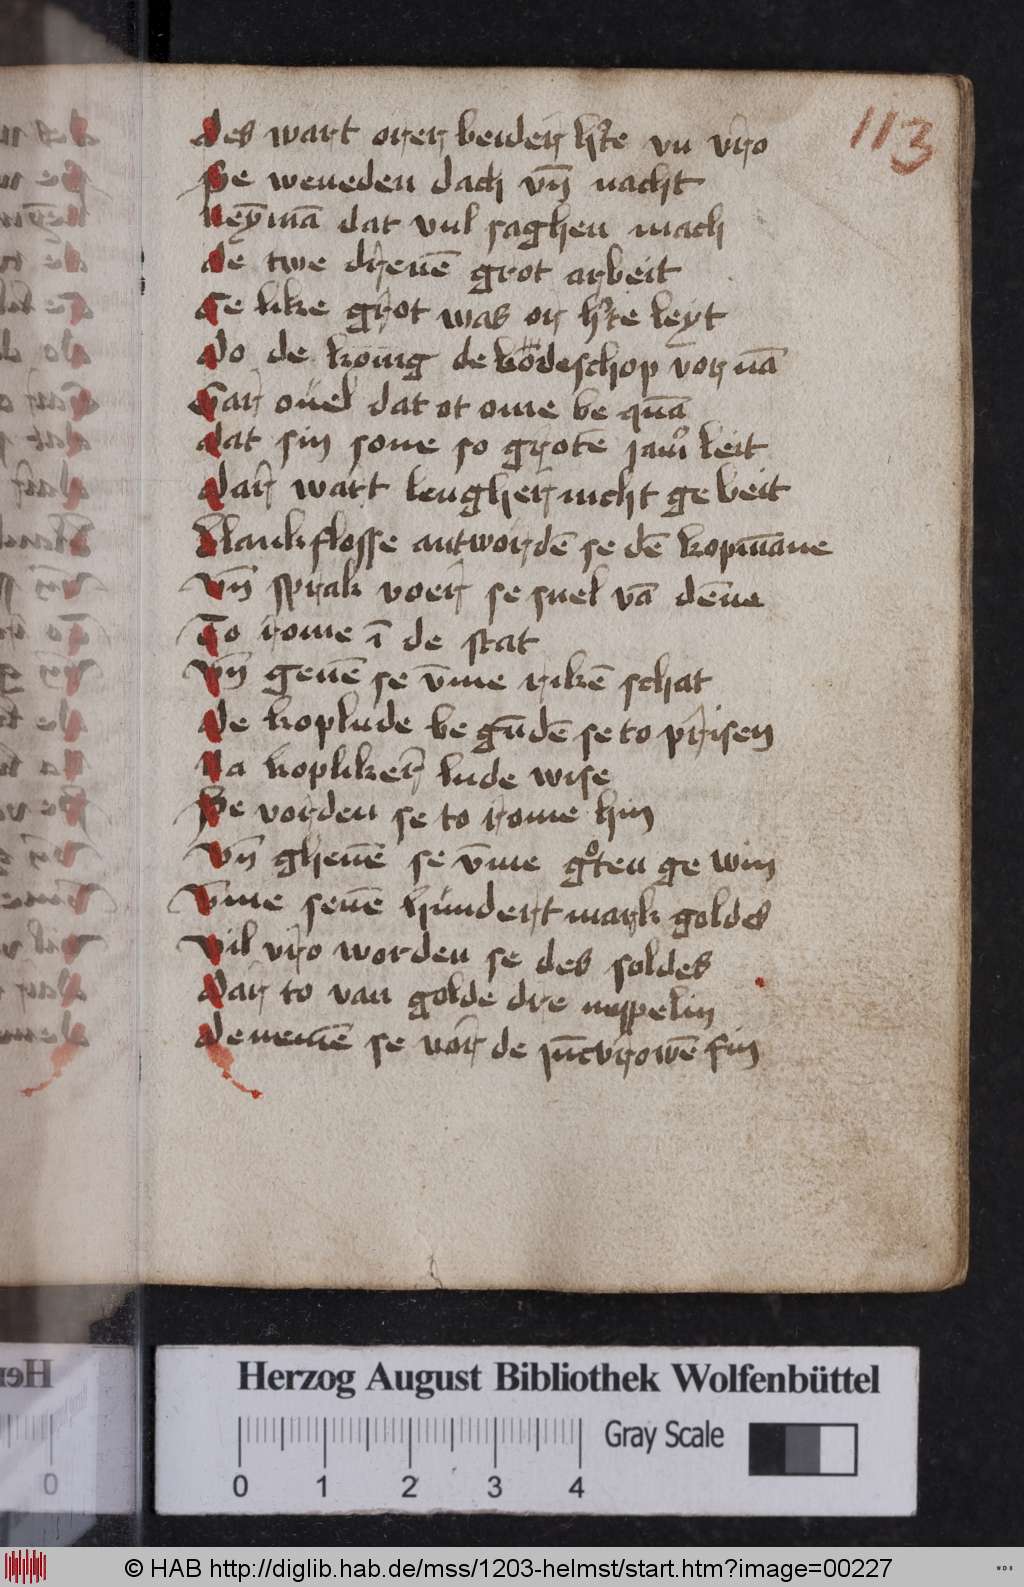 113
des wart orer beider hte vn vro
Se weueden dach vn̄ nacht
Neȳmā dat vul saghen mach
de twe dreuē grot arbeit
Te like grot was or hte leyt
do de konig de bodeschop vor nā
Gar ouel dat ot ome be quā
dat sin sone so grote iam leit
dar wart lengher nicht ge beit
blankflosse antwordē se dē kopmāne
vn̄ sprak voer se snel vā dēne
To rome ī de stat
vn̄ geuē se v̄me rikē schat
de koplude be gūdē se to prisen
Na kopliker lude wise
Se vorden se to rome hin
vn̄ gheuē se v̄me goten ge win
v̄me seuē hundert mark goldes
vil vro worden se des soldes
dar to van golde dre neppelin
de nemē se vor de jūcvrowē fin
Herzog August Bibliothek Wolfenbüttel
0 1 2 3 4
Gray Scale
© HAB http://diglib.hab.de/mss/1203-helmst/start.htm?image=00227